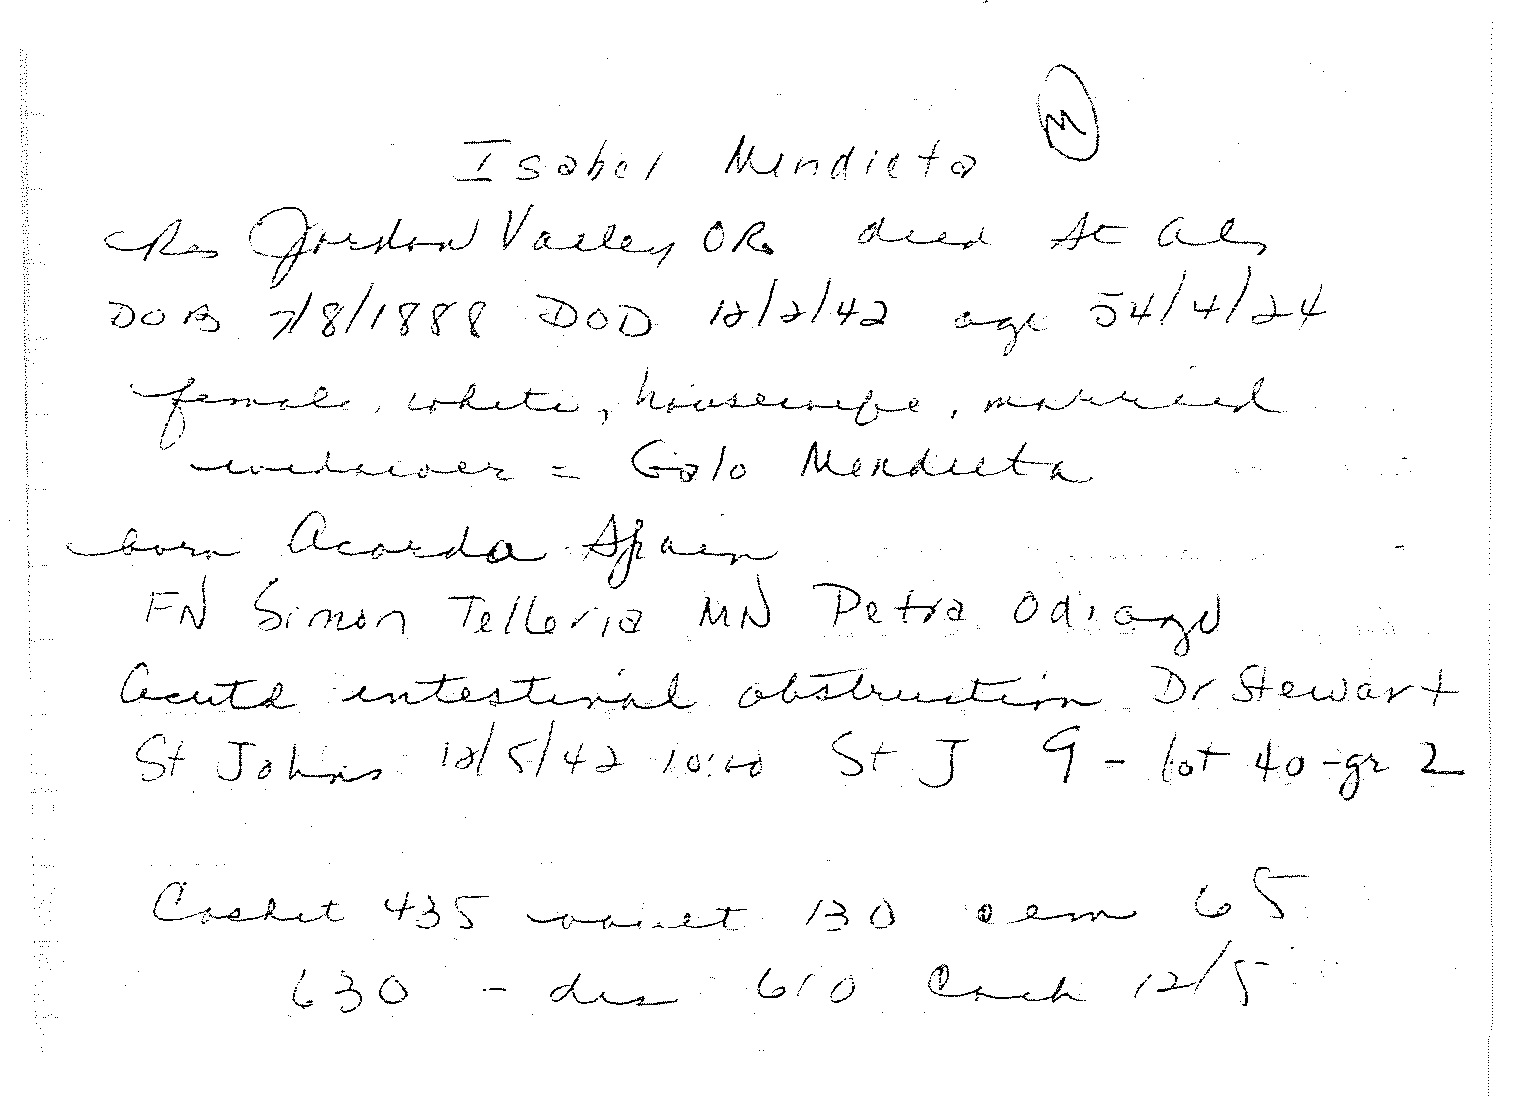 M
Isabel Mendieta
Res Jordon Valley OR died St Als
DOB 7/8/1888 DOD 12/2/42 age 54/4/24
female, white, housewife, married
widower = Galo Mendieta
born Acorda Spain
FN Simon Telleria MN Petra Odiago
Acute intestinal obstruction Dr Stewart
St Johns 12/5/42 10:00 St J 9 - lot 40 - gr 2
Casket 435 vault 130 cem 65
630 - dis 610 Cash 12/5